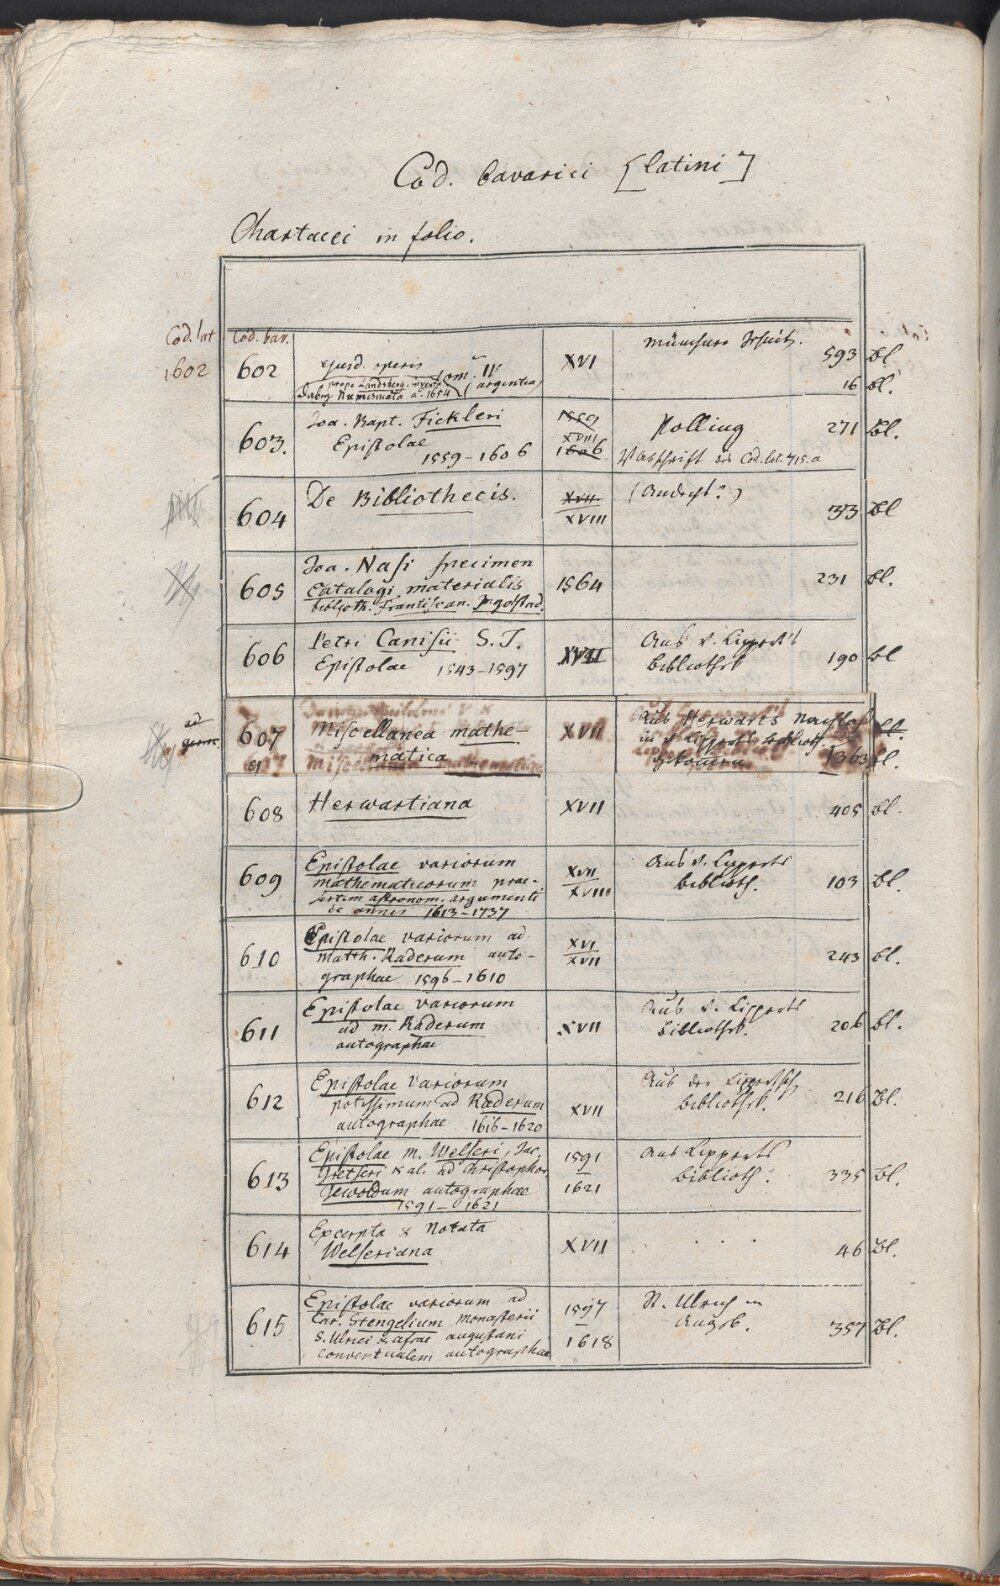 Cod. bavarici [latini]
Chartacei in folio.
Cod. lat
1602
Cod. bav.
602
ejusd. operis tom. IV
prope Landsberg. inventa (argentea)
Numismata a. 1654
XVI
Münchner Jesuit.
593 Bl
16 Bl.
603.
Joa. Bapt. Fickleri
Epistolae
1559-1606
1559
XVIII
1606
Polling
Abschrift des Cod. lat. 715.a
271 Bl.
604
De Bibliothecis.
XVII
XVIII
(Andechs?)
33 Bl
605
Joa. Nasi specimen
Catalogi materialis
biblioth. Franciscan. Ingolstad.
1564
231 Bl.
606
Petri Canisii S. J.
Epistolae 1543-1597
XVII
Aus v. Lippert's
Bibliothek
190 Bl
ad
germ.
607
Miscellanea mathe-
matica
XVII
Aus Herwarts Nachlaß
in v. Lipperts Biblioth.
gekommen
363 Bl.
608
Herwartiana
XVII
405 Bl.
609
Epistolae variorum
mathematicorum prae-
sertim astronom. argumenti
de annis 1613-1737
XVII
XVIII
Aus v. Lipperts
Biblioth.
103 Bl.
610
Epistolae variorum ad
Matth. Raderum auto-
graphae 1596-1610
XVI
XVII
243 Bl.
611
Epistolae variorum
ad M. Raderum
autographae
XVII
Aus v. Lipperts
Bibliothek.
206 Bl.
612
Epistolae variorum
potissimum ad Raderum
autographae 1616-1620
XVII
Aus der Lippertsch.
Bibliothek.
216 Bl.
613
Epistolae M. Welseri, Jac.
Gretseri & al. ad Christophor.
Gewoldum autographae
1591-1621
1591
1621
Aus Lipperts
Biblioth.
335 Bl.
614
Excerpta & Notata
Welseriana
XVII
. . .
46 Bl.
615
Epistolae variorum ad
Car. Stengelium monasterii
S. Ulrici & Afrae augustani
conventualem autographae
1597
1618
St. Ulrich in
Augsb.
357 Bl.